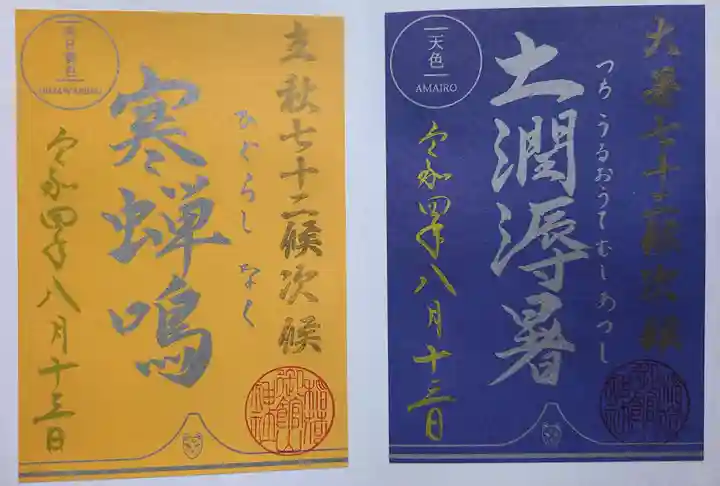 立秋七十二候次候
ひぐらしなく
寒蝉鳴
令和四年八月十三日
向日葵色
HIMAWARIIRO
大暑七十二候次候
つちうるおうてむしあつし
土潤溽暑
令和四年八月十三日
天色
AMAIRO